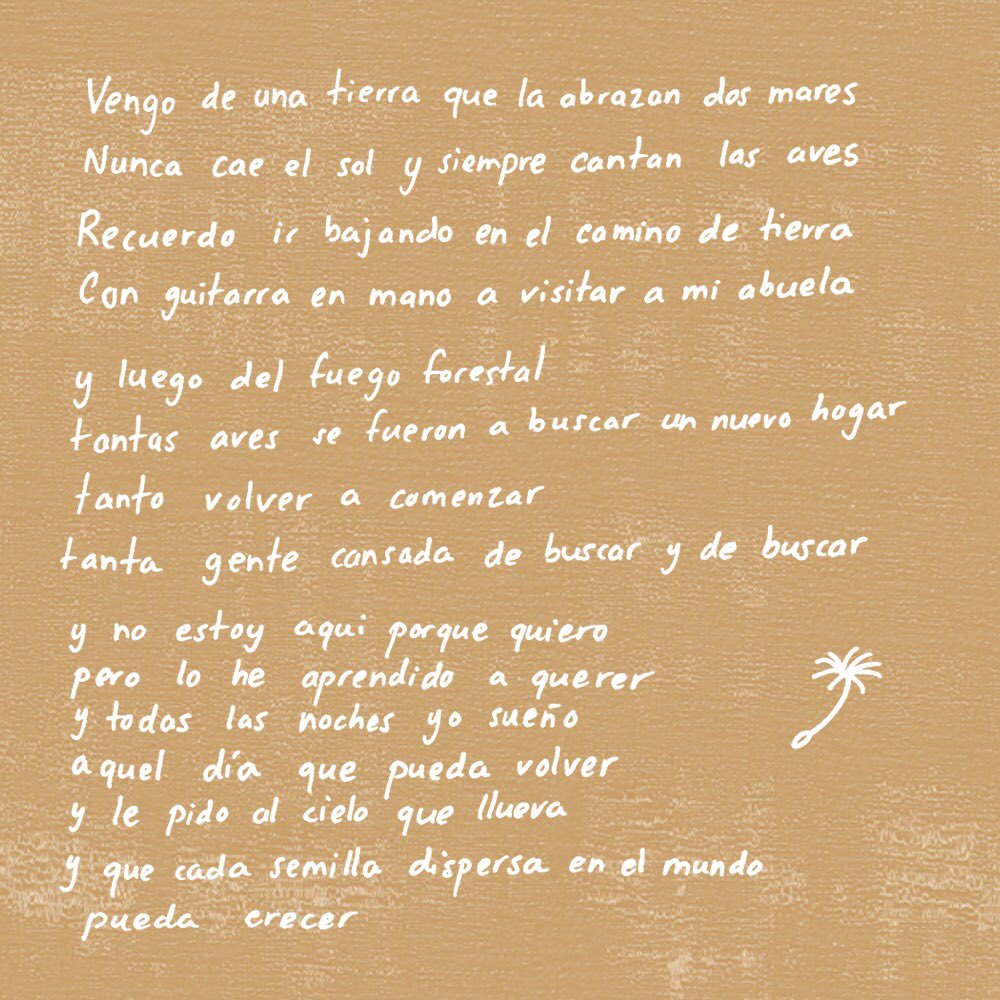 Vengo de una tierra que la abrazan dos mares
Nunca cae el sol y siempre cantan las aves
Recuerdo ir bajando en el camino de tierra
Con guitarra en mano a visitar a mi abuela
y luego del fuego forestal
tantas aves se fueron a buscar un nuevo hogar
tanto volver a comenzar
tanta gente cansada de buscar y de buscar
y no estoy aqui porque quiero
pero lo he aprendido a querer
y todas las noches yo sueño
aquel día que pueda volver
y le pido al cielo que llueva
y que cada semilla dispersa en el mundo
pueda crecer